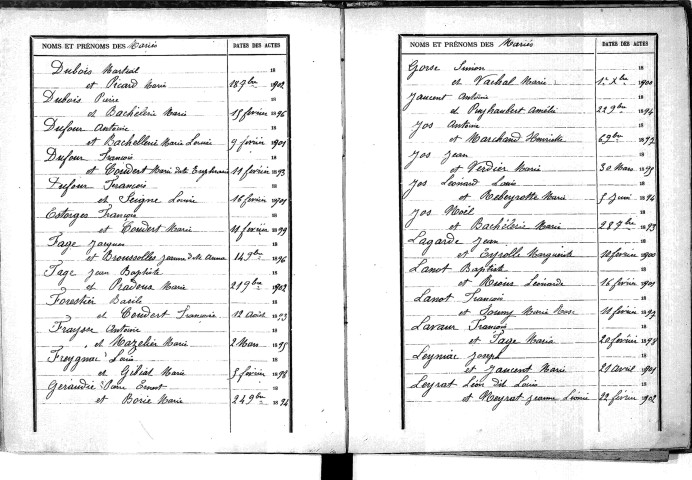 NOMS ET PRÉNOMS DES Mariés DATES DES ACTES
Dubois Martial 18
et Picard Marie 18 9bre 1902
Dubois Pierre 18
et Bachèlerie Marie 15 février 1896
Dufour Antoine 18
et Bachellerie Marie Louise 9 février 1901
Dufour François 18
et Coudert Marie dite Euphrasie 11 février 1893
Dufour François 18
et Seigne Louise 16 février 1901
Estorges François 18
et Coudert Marie 11 février 1899
Fage Jacques 18
et Brousselles Jeanne dite Anna 14 9bre 1896
Fage Jean Baptiste 18
et Pradoux Marie 21 9bre 1902
Forestier Basile 18
et Coudert Françoise 12 Août 1893
Fraysse Antoine 18
et Mazelier Marie 2 Mars 1895
Freygnac Louis 18
et Gibiat Marie 5 février 1898
Geraudie Ernest 18
et Borie Marie 24 9bre 1894
NOMS ET PRÉNOMS DES Mariés DATES DES ACTES
Gorse Simon 18
et Vachal Marie 1er Xbre 1900
Jaucent Antoine 18
et Puyhaubert Amélie 22 9bre 1894
Jos Antoine 18
et Marchand Henriette 6 9bre 1897
Jos Jean 18
et Verdier Marie 30 Mars 1895
Jos Léonard Louis 18
et Rebeyrotte Marie 5 Juin 1894
Jos Noël 18
et Bachèlerie Marie 28 9bre 1893
Lagarde Jean 18
et Eyrolle Marguerite 10 février 1900
Lanot Baptiste 18
et Rioux Léonarde 16 février 1901
Lanot François 18
et Marie 11 février 1893
Lavaur François 18
et Fage Marie 20 février 1898
Leyniac Joseph 18
et Jaucent Marie 21 avril 1901
Leyrat Léon dit Louis 18
et Meyrat Jeanne Léonie 22 février 1902